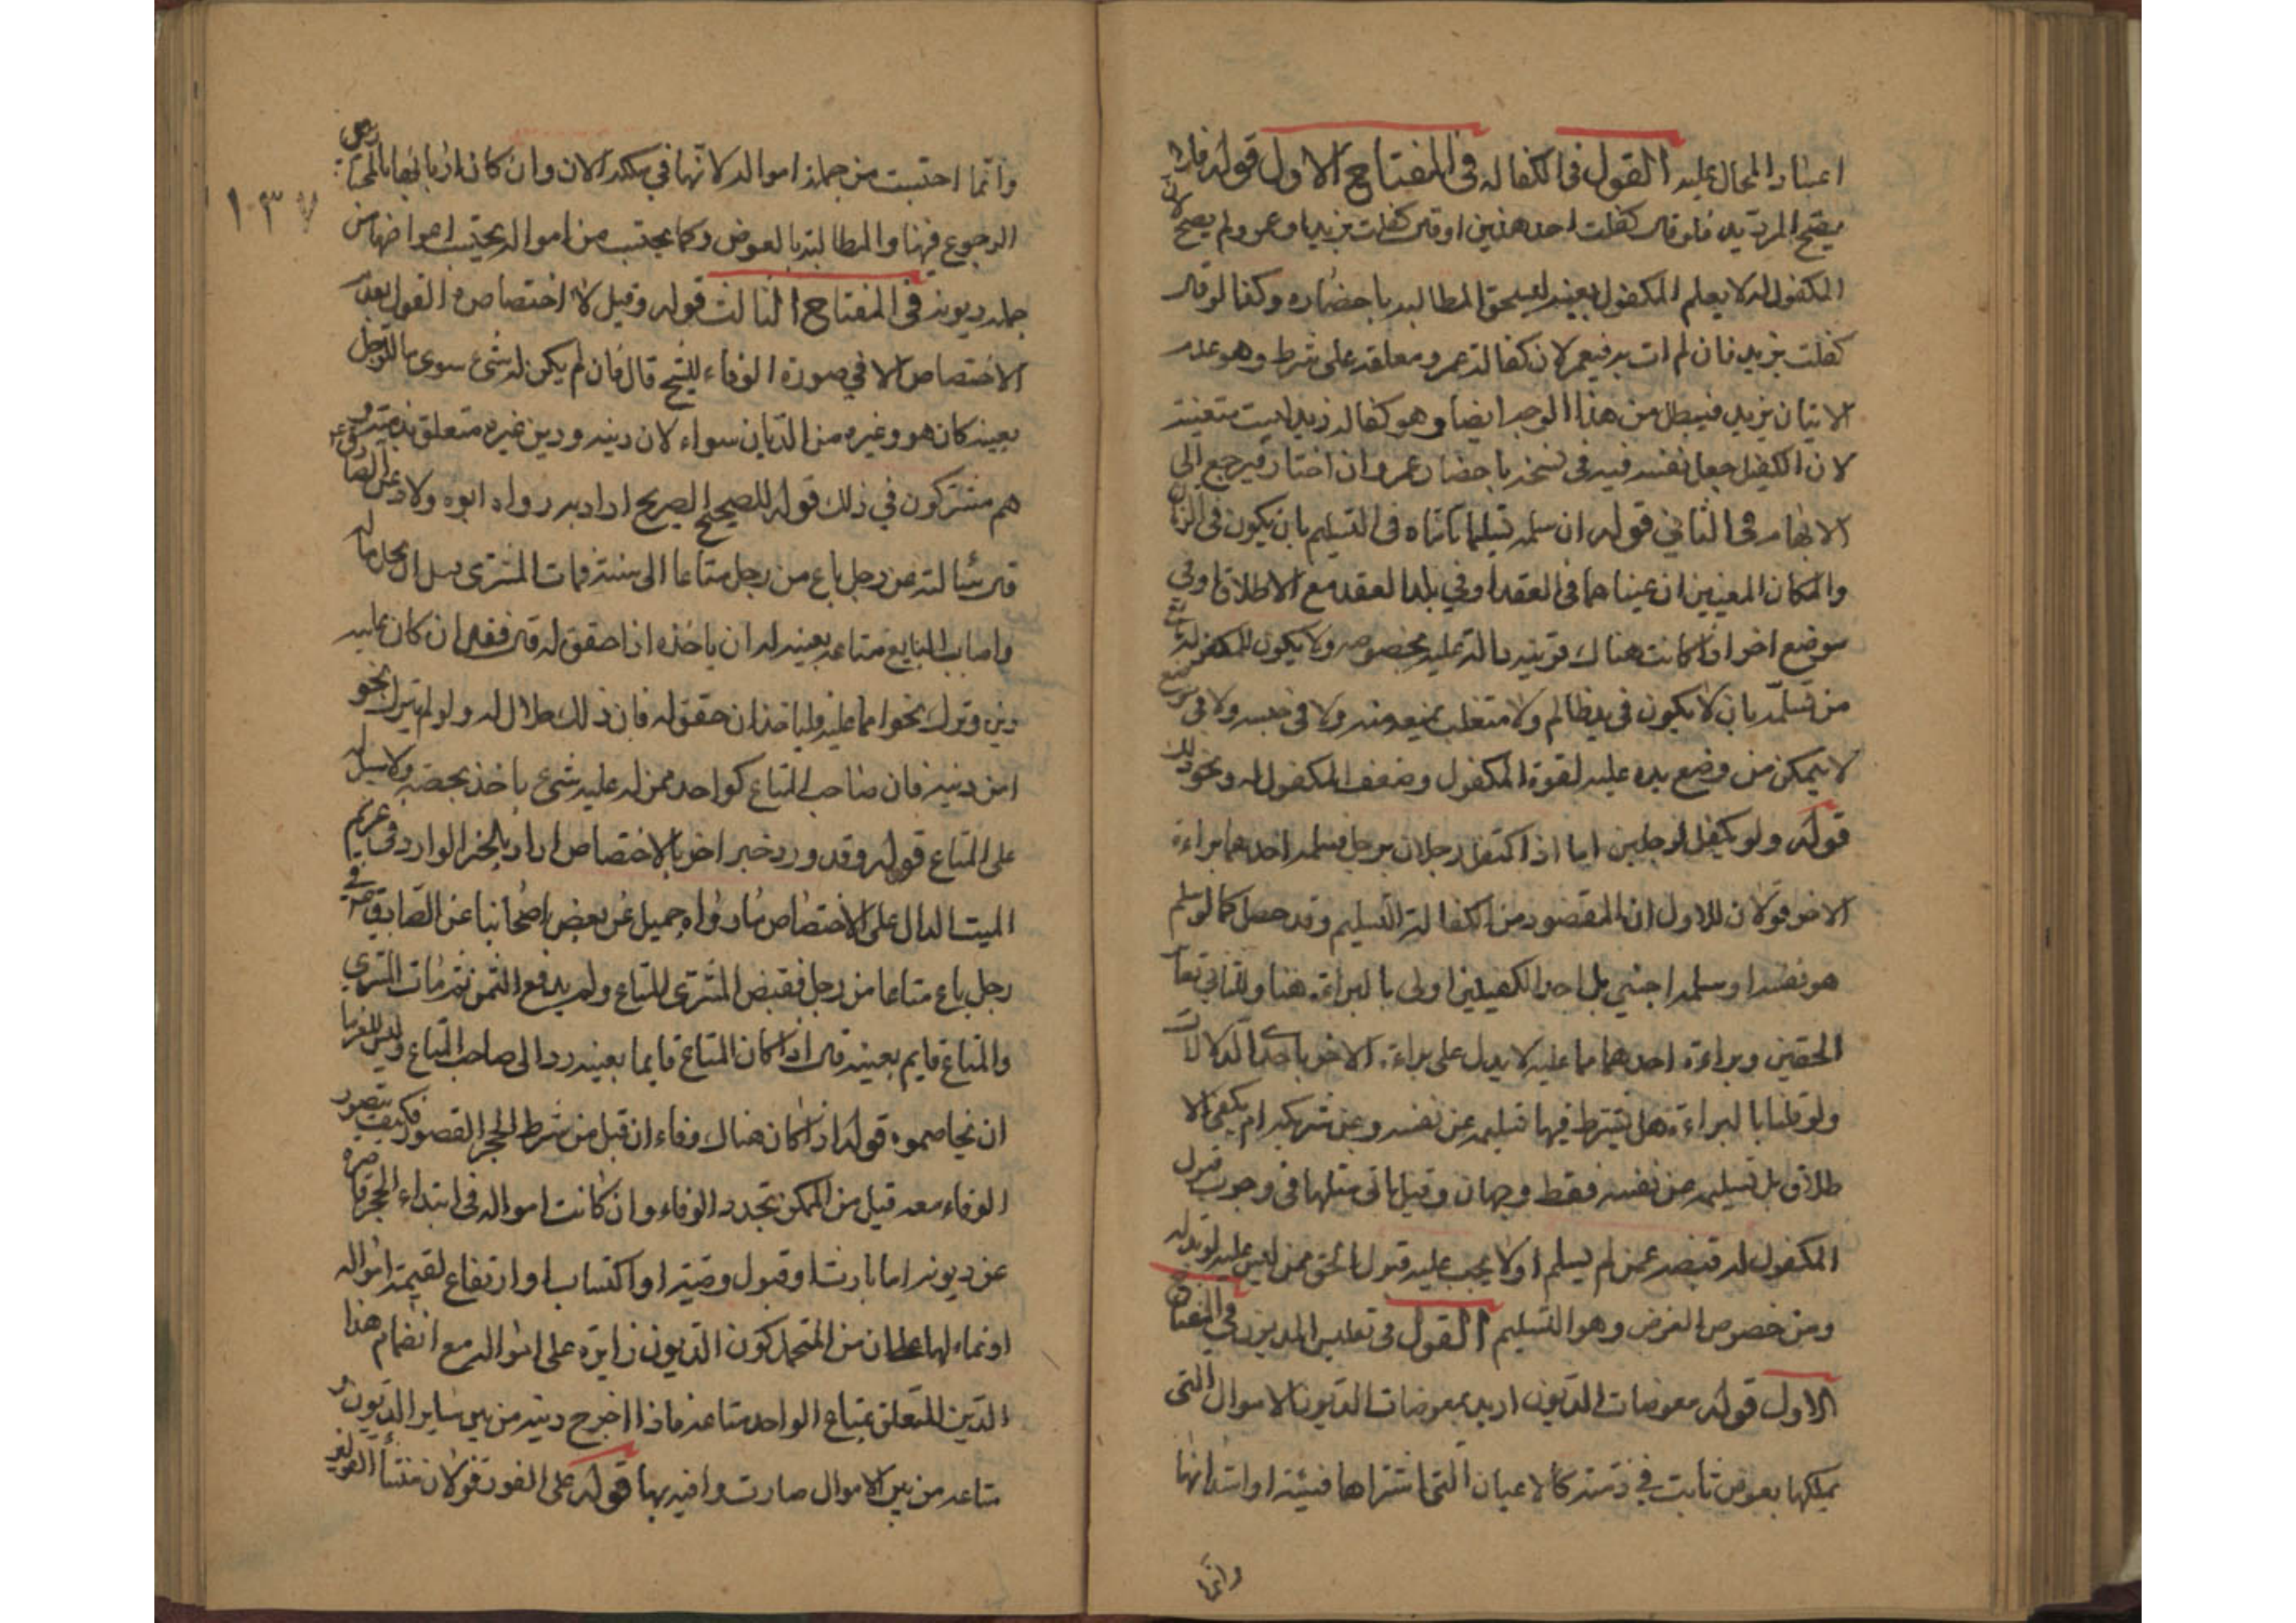 اعسار المحال عليه القول في الكفالة في المفتاح الاول قوله فلا
يصح الترديد فلو قال كفلت احد هذين او قال كفلت بزيد او عمرو لم يصح لان
المكفول له لا يعلم المكفول بعينه ليستحق المطالبة باحضاره وكذا لو قال
كفلت بزيد فان لم ات به فبعمرو لان كفالة عمرو معلقة على شرط وهو عدم
الاتيان بزيد فيبطل من هذا الوجه ايضا وهو كفالة زيد ليست متعينة
لان الكفيل جعل نفسه فيه في باحضار عمرو ان اختار فيرجع الى
الابهام في الثاني قوله ان سلمه تسليما تاما في التسليم بان يكون في الزمان
والمكان المعينين ان عيناهما في العقد او في بلد العقد مع الاطلاق او في
موضع اخر اذا كانت هناك قرينة دالة عليه بخصوصه ولا يكون للمكفول له مانع
من تسلمه بان لا يكون في يد ظالم ولا متغلب يمنعه منه ولا في حبسه ولا في موضع
لا يتمكن من وضع يده عليه لقوة المكفول وضعف المكفول له ونحو ذلك
قوله ولو تكفل رجلين اما اذا كفل رجلان برجل فسلمه احدهما براءة
الاخر قولان للاول ان المقصود من الكفالة التسليم وقد حصل كما لو سلم
هو نفسه او سلمه اجنبي بل احد الكفيلين اولى بالبراءة هنا وللثاني تغاير
الحقين وبراءة احدهما مما عليه لا يدل على براءة الاخر باحدى الدلالات
ولو قلنا بالبراءة هل يشترط فيها تسليمه عن نفسه وعن شريكه ام يكفي الا
طلاق بل تسليمه عن نفسه فقط وجهان وقيل ياتي مثلها في وجوب قبول
المكفول له قبضه عمن لم يسلم او لا يجب عليه قبول الحق ممن ليس عليه لو بذله
ومن خصوص الغرض وهو التسليم القول في تفليس المديون في المفتاح
الاول قوله معوضات الديون اريد بمعوضات الديون الاموال التي
يملكها بعوض ثابت في ذمته كالاعيان التي اشتراها نسيئة او استدانها
وانما
١٠٣٧
وانما احتسبت من جملة امواله لانها في ملكه الان وان كان اربابها بالخيار بين
الرجوع فيها والمطالبة بالعوض وكما يحتسب من امواله يحتسب اعواضها من
جملة ديونه في المفتاح الثالث قوله وقيل لا اختصاص القول بعدم
الاختصاص الا في صورة الوفاء للشيخ قال فان لم يكن له شيء سوى مال الرجل
بعينه كان هو وغيره من الديان سواء لان دينه ودين غيره متعلق بذمته و
هم مشتركون في ذلك قوله للصحيح الصريح اراد به رواه ابو ولاد عن الصادق ع
قال سئالته عن رجل باع من رجل متاعا الى سنة فمات المشتري قبل ان يحل ماله
واصاب البايع متاعه بعينه له ان ياخذه اذا حقق له قال فقال ان كان عليه
دين وترك نحوا مما عليه فلياخذ ان حقق له فان ذلك حلال له ولو لم يترك نحو
امن دينه فان صاحب المتاع كواحد ممن له عليه شيء ياخذ بحصته ولا سبيل له
على المتاع قوله وقد ورد خبر اخر بالاختصاص اراد بالخبر الوارد في غريم
الميت الدال على الاختصاص ما رواه جميل عن بعض اصحابنا عن الصادق ع في
رجل باع متاعا من رجل فقبض المشتري المتاع ولم يدفع الثمن ثم مات المشتري
والمتاع قايم بعينه قال اذا كان المتاع قايما بعينه رد الى صاحب المتاع وليس للغرما
ان يخاصموه قوله اذا كان هناك وفاء ان قيل من شرط الحجر القصور فكيف يتصور
الوفاء معه قيل من الممكن تجدد الوفاء وان كانت امواله في ابتداء الحجر قاصرة
عن ديونه اما بارث او قبول وصية او اكتساب او ارتفاع لقيمة امواله
او نماء لها على ان من المتحمل كون الديون زايدة على امواله مع انضمام هذا
الدين المتعلق بمتاع الواحد متاعه فاذا اخرج دينه من بين ساير الديون و
متاعه من بين الاموال صارت وافية بها قوله على الفور قولان منشأ الفور